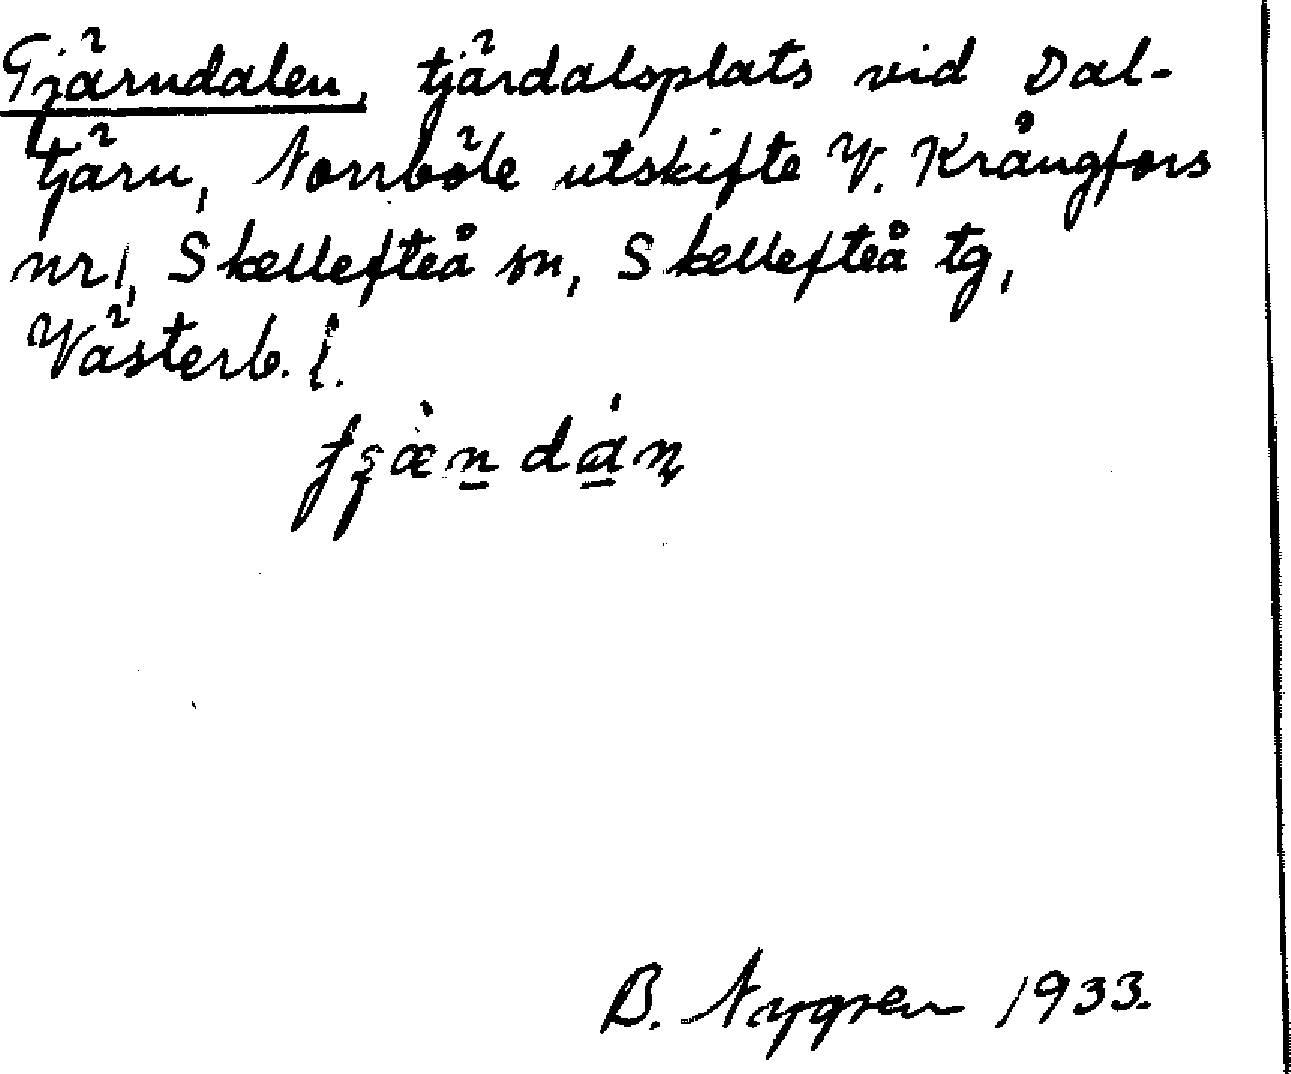 Tjärndalen, tjärdalsplats vid Dal-
tjärn, Norrböle utskifte V. Krångfors
nr 1, Skellefteå sn, Skellefteå tg,
Västerb. l.
B. Nygren 1933.